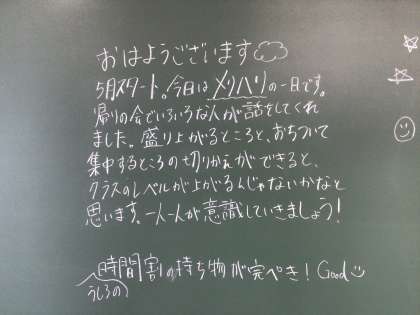 おはようございます
5月スタート。今日はメリハリの一日です。
帰りの会でいろいろな人が話をしてくれ
ました。盛り上がるところと、おちついて
集中するところの切りかえができると、
クラスのレベルが上がるんじゃないかなと
思います。一人一人が意識していきましょう!
時間割の持ち物が完ぺき! Good
うしろの